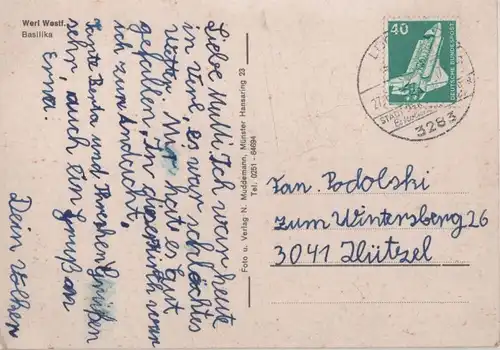 Werl Westf.
Basilika
Liebe Mutti Ich war heute
in Verl, es war schlechtes
Wetter. Mir hat es Gut
gefallen, In der Kirch war
ich zur Andacht,
Tante Berta und Grüßen
sehr, auch ein Gruß an
Erna.
Dein
Foto u. Verlag N. Muddemann, Münster Hansaring 23
Tel. 0251 - 64694
40
DEUTSCHE BUNDESPOST
3283
Fam. Podolski
zum Wintersberg 26
3041 Hützel